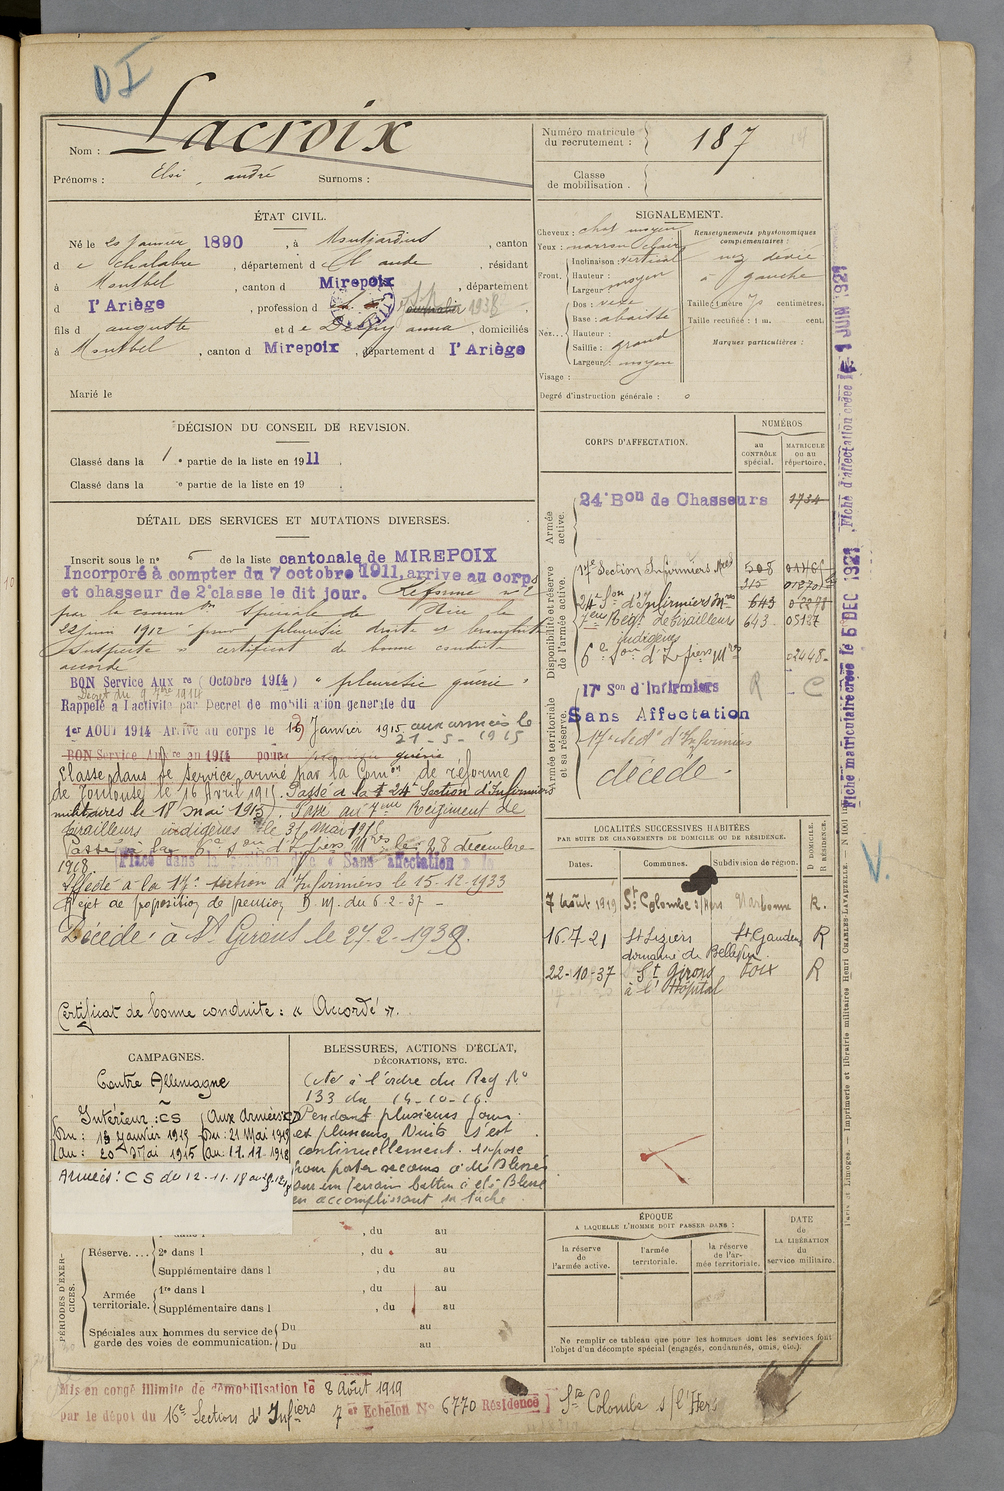 DI
Lacroix
Nom :
Prénoms : Elsi, andré Surnoms :
Numéro matricule du recrutement : 187
Classe de mobilisation.
ÉTAT CIVIL.
Né le 20 janvier 1890, à Montjardin, canton
d e Chalabre, département d e l'aude, résidant
à Montbel, canton d Mirepoix, département
d l'Ariège, profession d 1938
fils d auguste et d e anna, domiciliés
à Montbel, canton d Mirepoix, département d l'Ariège
Marié le
SIGNALEMENT.
Cheveux : chat moyen
Yeux : marron clairs
Front. Inclinaison : vertical
Hauteur : moyen
Largeur
Nez... Dos :
Base : abaissée
Hauteur :
Saillie : grand
Largeur : moyen
Visage :
Renseignements physionomiques complémentaires :
nez dévié
à gauche
Taille : 1 mètre 70 centimètres.
Taille rectifiée : 1 m. cent.
Marques particulières :
Degré d'instruction générale : 0
DÉCISION DU CONSEIL DE REVISION.
Classé dans la 1 e partie de la liste en 1911.
Classé dans la e partie de la liste en 19 .
DÉTAIL DES SERVICES ET MUTATIONS DIVERSES.
Inscrit sous le n° 5 de la liste cantonale de MIREPOIX
Incorporé à compter du 7 octobre 1911, arrive au corps
et chasseur de 2e classe le dit jour. Réformé n° 2
par la commion spéciale de Nice le
22 juin 1912 pour pleurésie droite et bronchite
suspecte certificat de bonne conduite
accordé
BON Service Aux re (Octobre 1914) "pleurésie guérie"
Décret du 9 7bre 1914
Rappelé à l'activité par Decret de mobilisation generale du
1er AOUT 1914 Arrivé au corps le 19 Janvier 1915 aux armées le
21-5-1915
BON Service Aux re en 1914 pour guérie
Classé dans le service armé par la Comon de réforme
de Toulouse le 16 Avril 1915. Passé à la 24e Section d'Infirmiers
militaires le 18 mai 1915. Passé au 7eme Régiment de
Tirailleurs indigènes le 31 Mai 1916
Passé à la 6e Son d'Infiers Mres le 28 décembre
1918. Placé dans la position dite « Sans affectation »
Affecté à la 17e section d'Infirmiers le 15-12-1933
Rejet de proposition de pension D.M. du 6-2-37
Décédé à St Girons le 27-2-1938.
Certificat de bonne conduite : « Accordé ».
CORPS D'AFFECTATION.
NUMÉROS
au CONTRÔLE spécial.
MATRICULE ou au répertoire.
Armée active.
24e Bon de Chasseurs 1734
Disponibilité et réserve de l'armée active.
17e Section Infirmiers Mres 508
215
24e Son d'Infirmiers Mres 643
7ème Régt de Tirailleurs 643 05127
indigènes
6e Son d'Infiers Mres 02448
Armée territoriale et sa réserve.
17e Son d'Infirmiers R C
Sans Affectation
17e Secton d'Infirmiers
décédé.
LOCALITÉS SUCCESSIVES HABITÉES
PAR SUITE DE CHANGEMENTS DE DOMICILE OU DE RÉSIDENCE.
Dates. Communes. Subdivision de région. D DOMICILE. R RÉSIDENCE.
7 Août 1919 Ste Colombe s/Hers Narbonne R.
16.7.21 St Lizier St Gaudens R
domaine de Bellevue
22-10-37 St Girons Foix R
à l'Hôpital
CAMPAGNES.
Contre Allemagne
Intérieur : CS Aux Armées : CD
Du : 19 Janvier 1915 Du : 21 Mai 1915
au : 20 Mai 1915 au : 11.11.1918
Armées : CS du 12.11.18 au
BLESSURES, ACTIONS D'ÉCLAT,
DÉCORATIONS, ETC.
Cité à l'ordre du Reg N°
133 du 14-10-16.
Pendant plusieurs jours
et plusieurs Nuits s'est
continuellement exposé
pour porter secours à des Blessés
sur un Terrain battu a été Blessé
en accomplissant sa tâche
PÉRIODES D'EXERCICES.
Réserve.... 2e dans l , du au
Supplémentaire dans l , du au
Armée territoriale. 1re dans l , du au
Supplémentaire dans l , du au
Spéciales aux hommes du service de garde des voies de communication. Du au
Du au
ÉPOQUE
A LAQUELLE L'HOMME DOIT PASSER DANS :
la réserve de l'armée active.
l'armée territoriale.
la réserve de l'armée territoriale.
DATE de LA LIBÉRATION du service militaire.
Ne remplir ce tableau que pour les hommes dont les services font
l'objet d'un décompte spécial (engagés, condamnés, omis, etc.).
Mis en congé illimité de démobilisation le 8 Août 1919
par le dépot du 16e Section d'Infiers 7 er Echelon No 6770 Résidence Ste Colombe s/l'Hers
Fiche matriculaire créée le 5 DEC 1921. Fiche d'affectation créée le 1 JUIN 1921
V.
Paris et Limoges. — Imprimerie et librairie militaires Henri CHARLES-LAVAUZELLE.